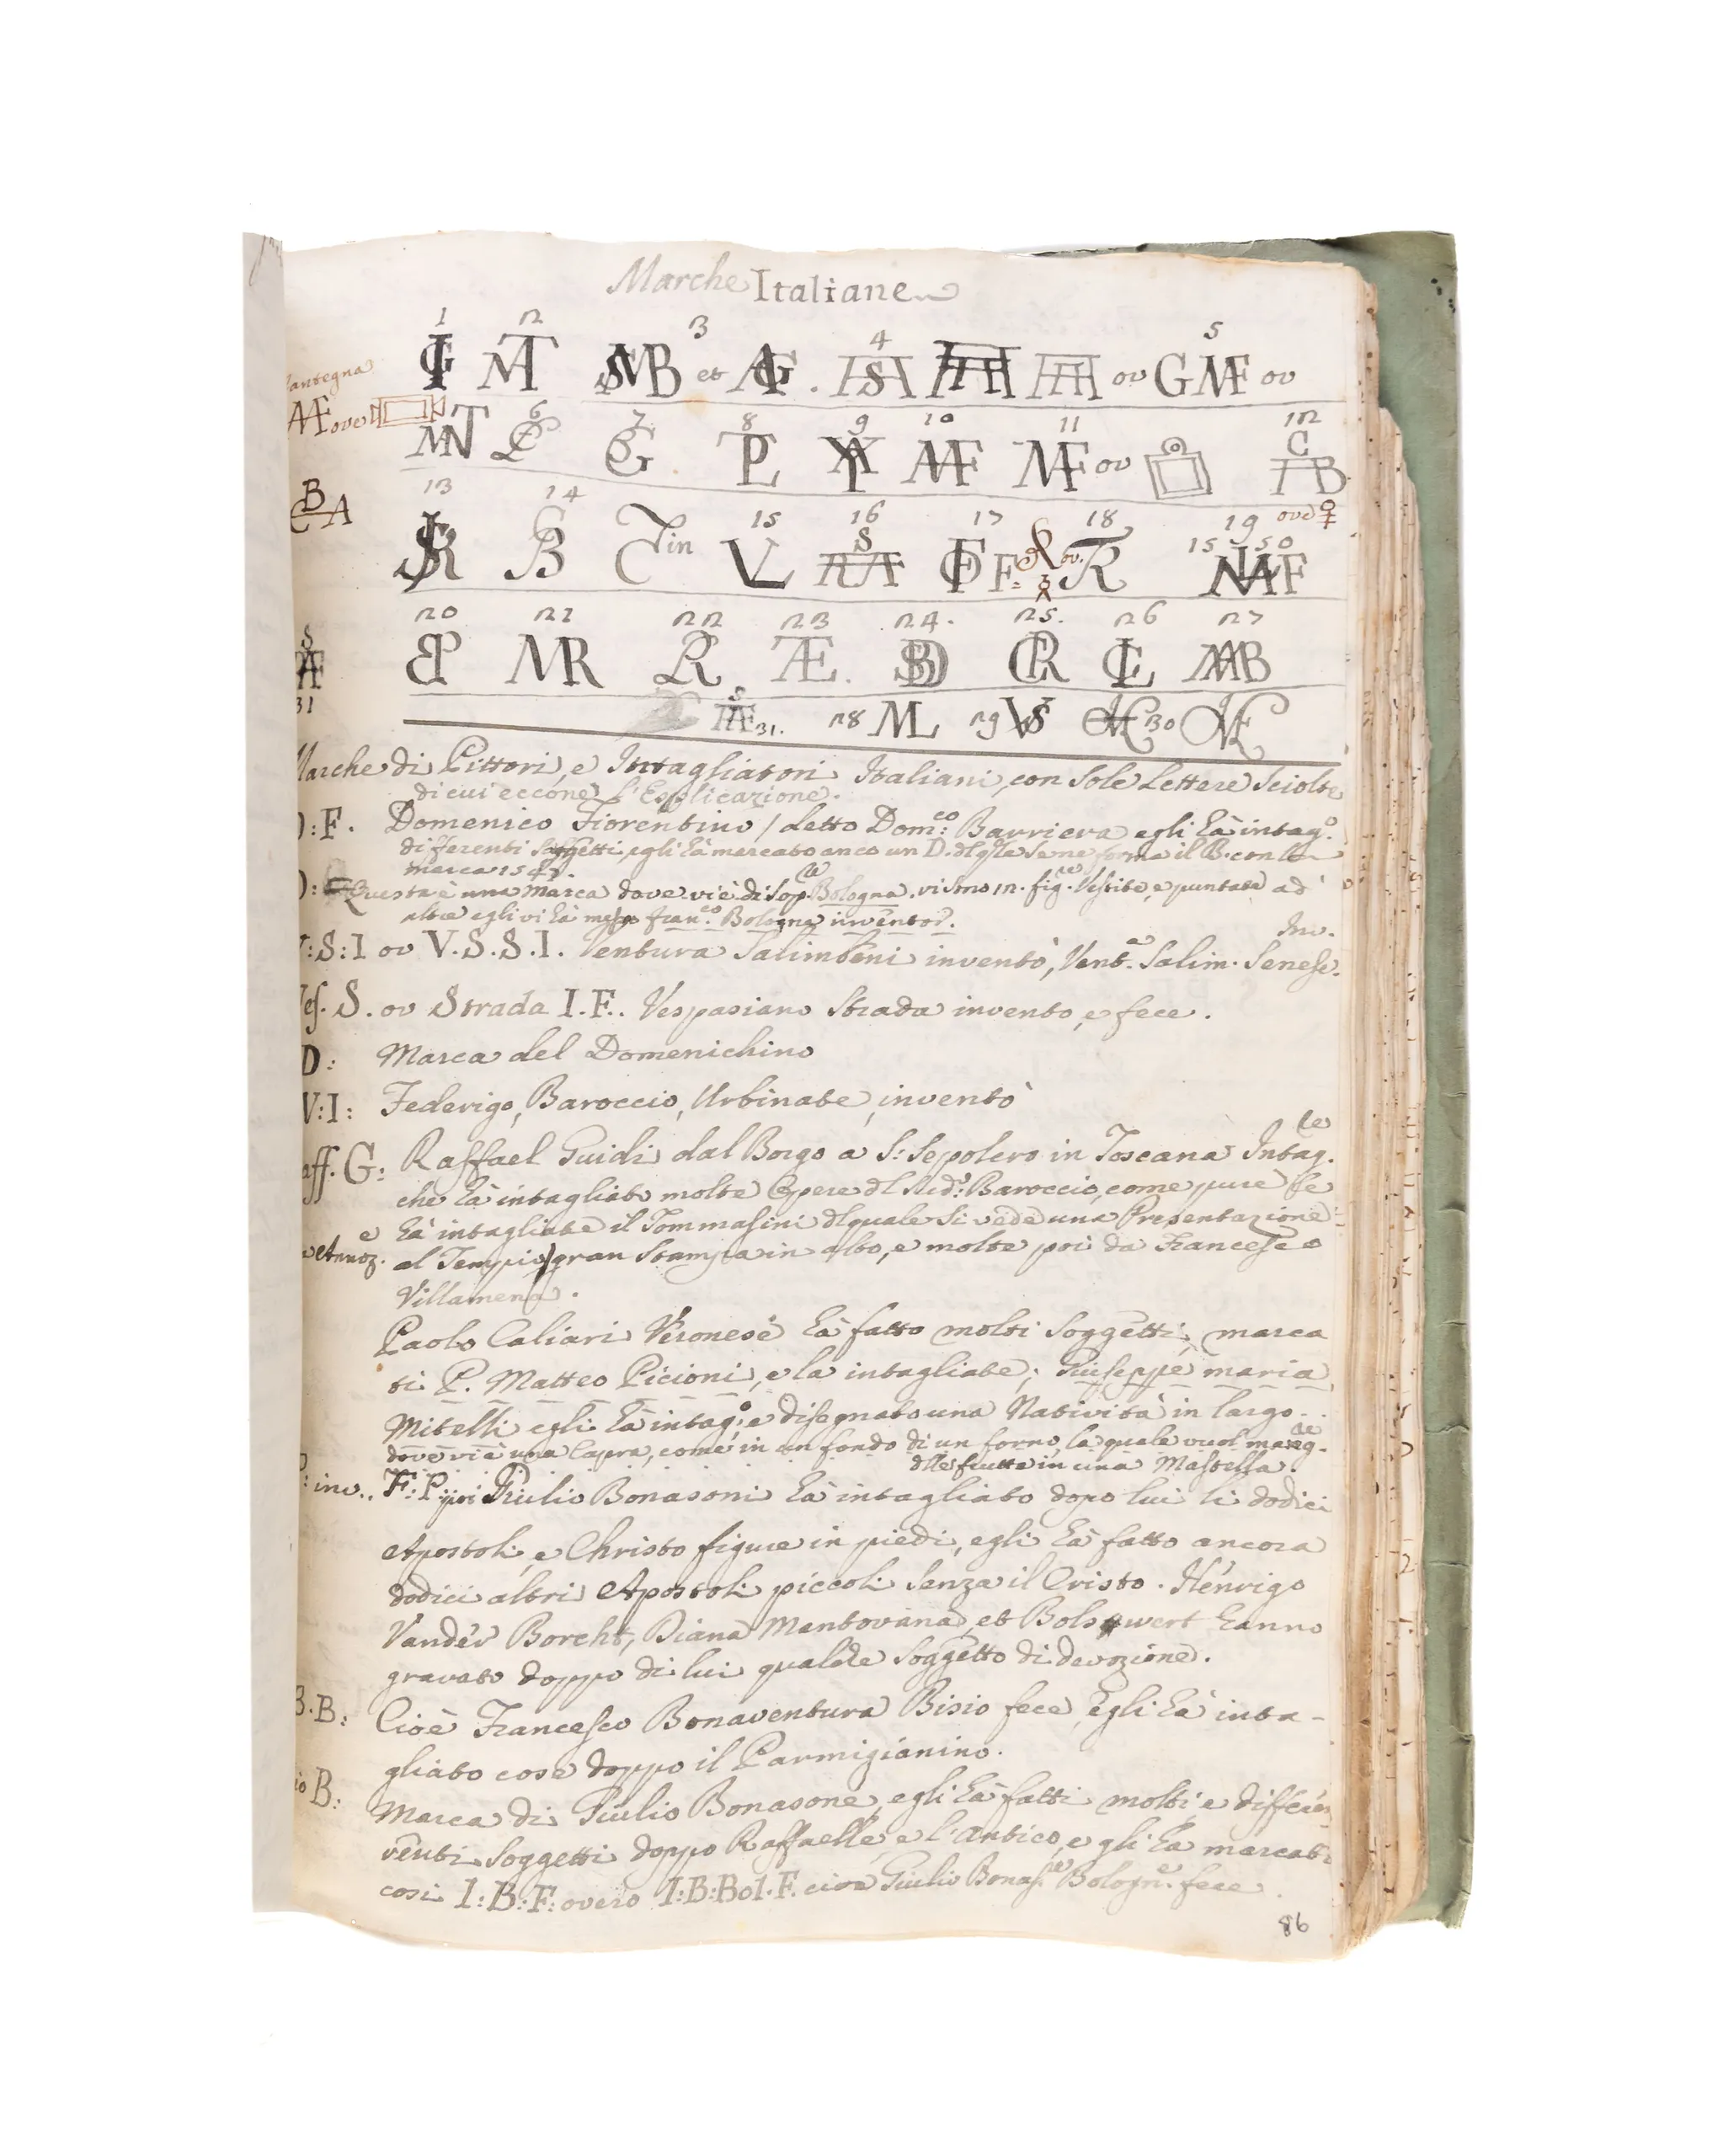 Marche Italiane
1 2 3 4 5
et ov GMF ov
antegna
ove
6 7 8 9 10 11 12
MF ov
BA
13 14 15 16 17 18 19
in ov. 15 50 ove
20 21 22 23 24. 25. 26 27
MR
31
31. 28 29 30
Marche di Pittori, e Intagliatori Italiani, con Sole Lettere Sciolte
di cui eccone l'Esplicazione.
D:F. Domenico Fiorentino / detto Dom:co Barriera egli hà intag:o
differenti Soggetti, egli hà marcato anco un D. dl qle se ne forma il B. con la
marca 154
Questa è una Marca dove vi è di Sop. Bologna. vi sono in. fig.re Vestite, e puntate ad
altre egli vi hà messo Fran.co Bologna inventor.
:S:I ov V.S.S.I. Ventura Salimbeni inventò, Vent.a Salim. Senese. Inv.
Ves. S. ov Strada I.F.. Vespasiano Strada invento, e fece.
D: Marca del Domenichino
V:I: Federigo, Baroccio, Urbinate, inventò
aff. G: Raffael Guidi dal Borgo a S: Sepolcro in Toscana Intag.re
che hà intagliato molte Opere dl Baroccio, come pure le
hà intagliate il Tommasini dl quale Si vede una Presentazione
al Tempio gran Stampa in alto, e molte poi da Francesco
Villamena.
Paolo Caliari Veronese hà fatto molti Soggetti, marca
ti P. Matteo Picioni, e la intagliate; Giuseppe maria
Mitelli egli hà intag:o e disegnato una Natività in largo..
dove vi è una Capra, come in un fondo di un forno, la quale vuol mang.re
dlle frutta in una Mastella.
P: inv.. F:P. poi Giulio Bonasoni hà intagliato dopo lui li dodici
Apostoli, e Christo figure in piedi, egli hà fatto ancora
dodici altri Apostoli piccoli Senza il Cristo. Henrigo
Vander Borcht, Diana Mantovana, et Bolswert hanno
gravato doppo di lui qualche Soggetto di devozione.
B.B: Cioè Francesco Bonaventura Bisio fece, Egli hà inta-
gliato cose doppo il Parmigianino.
io B: Marca di Giulio Bonasone, egli hà fatti molti, e differen
venti Soggetti doppo Raffaelle, e l'Antico, e gli hà marcati
cosi I:B:F: overo I:B:Bol.F. cioè Giulio Bonas.ne Bologn.e fece.
86